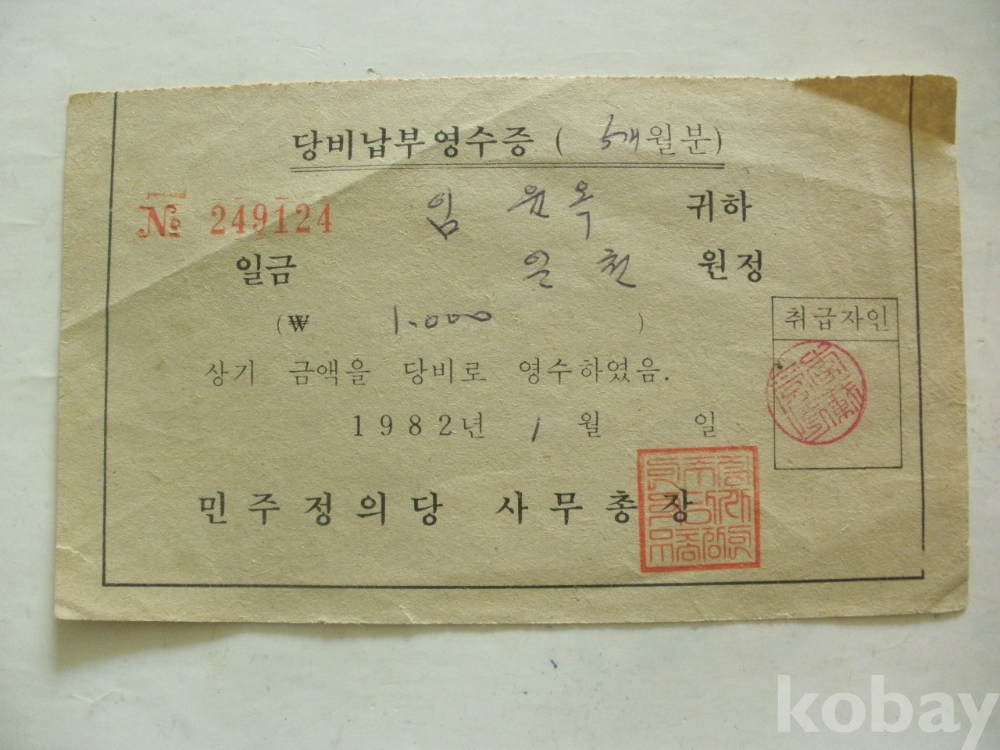 당비납부영수증 ( 5개월분)
№ 249124 임 윤옥 귀하
일금 일 천 원정
(₩ 1.000 )
취급자인
상기 금액을 당비로 영수하였음.
1982년 1월 일
민주정의당 사무총장
kobay